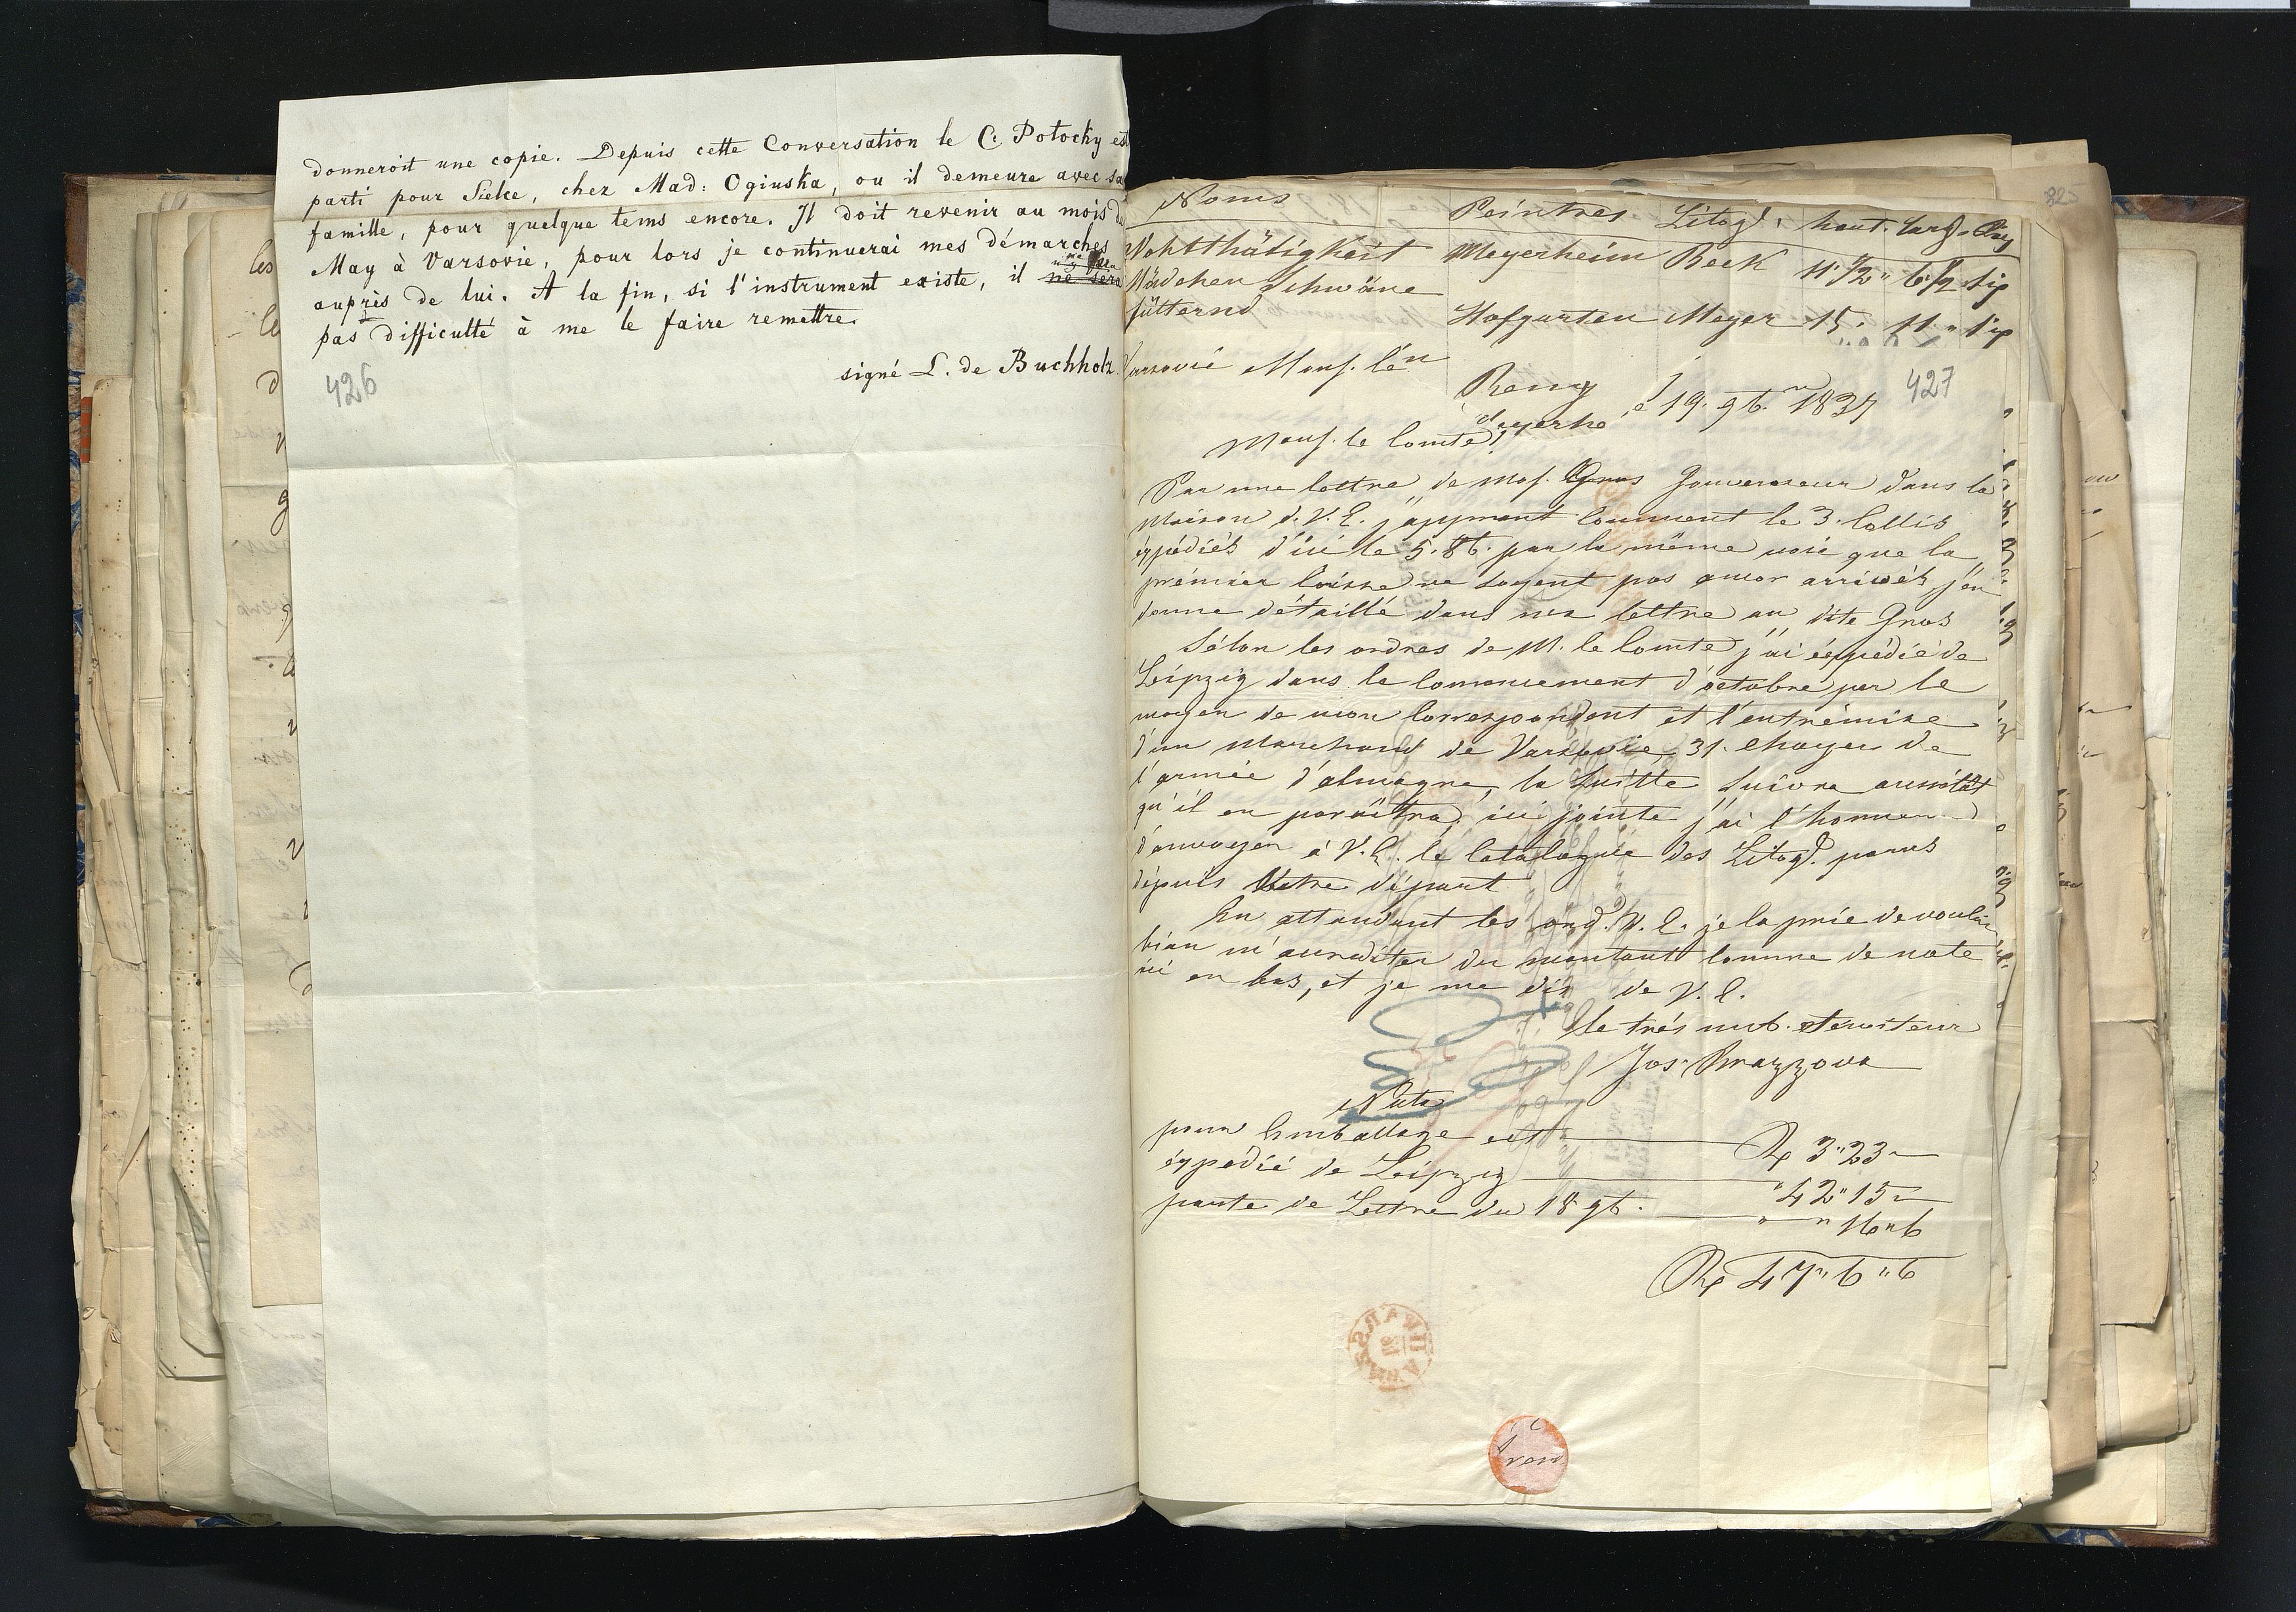 donneroit une copie. Depuis cette Conversation le C: Potocky est
parti pour Sielce, chez Mad: Oginska, ou il demeure avec sa
famille, pour quelque tems encore. Il doit revenir au mois de
May à Varsovie, pour lors je continuerai mes démarches
auprès de lui. A la fin, si l'instrument existe, il ne sera
pas difficulté à me le faire remettre.
signé L. de Buchholz
426
Noms Peintres Litogr. haut. larg.
Wohlthätigkeit Meyerheim Beck 11 1/2" 6 1/2
Mädchen Schwäne
fütternd Hofgarten Meyer 15. 11"
Varsovie
le 19. 9b. 1837
427
Monſ. le Comte!
Par une lettre de Moſ. Gros Gouverneur dans la
maison d. V. E. j'apprent comment le 3. Collis
éxpédiés d'ici le 5. 8b. par la même voie que la
prémier Caisse ne soyent pas encor arrivés j'en
donne détaillé dans ma lettre au dite Gros
Sélon les ordres de M. le Comte j'ai éxpédié de
Leipzig dans le Commencement d'octobre par le
moyen de mon Correspondent et l'entrémise
d'un Marchand de Varsovie, 31. de
l'armée d'almagne, la Suitte Suivra aussitôt
qu'il en paroîtra, ici jointe j'ai l'honneur
d'envoyer à V. E. le Catalogue des Litogr. parus
dépuis Votre départ
En attendant les ord. V. E. je la prie de vouloir
bien m'accrediter du montant Comme de note
ici en bas, et je me dis de V. E.
le trés umb. Serviteur
Jos.
Nota
pour Emballage ect. 3"23
éxpedié de Leipzig 42"15
porte de Lettre du 18 9b. 16"6
47"6"6
WARSSAWA